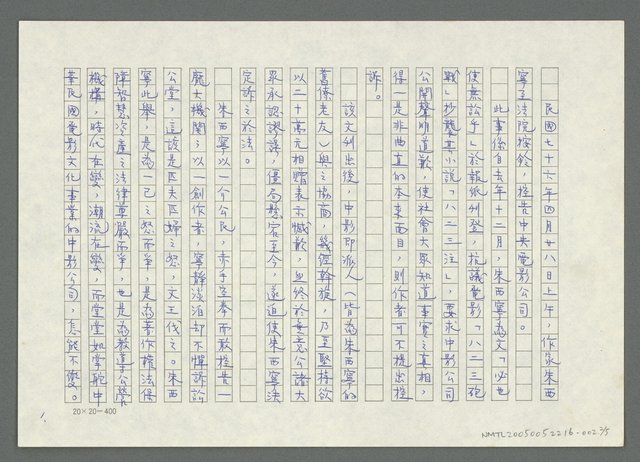 民國七十六年四月廿八日上午，作家朱西
寧至法院按鈴，控告中央電影公司。
此事係自去年十二月，朱西寧為文「必也
使無訟乎」於報紙刊登，抗議電影「八二三砲
戰」抄襲其小說「八二三注」，要求中影公司
公開聲明道歉，使社會大眾知道事實之真相，
得一是非曲直的本來面目，則作者可不提出控
訴。
該文刊出後，中影即派人（皆為朱西寧的
舊僚老友）與之協商，幾經斡旋，乃至堅持欲
以二十萬元相贈表示憾歉，但終於無意公諸大
眾承認認誤，僵局懸宕至今，遂迫使朱西寧決
定訴之於法。
朱西寧以一介公民，赤手空拳而敢控告一
龐大機關之以一創作者，寧靜淡泊卻不憚訴訟
公堂，這該是匹夫匹婦之怒，文王伐之。朱西
寧此舉，是為一己之怒而爭，是為著作權法保
障智慧資產之法律尊嚴而爭，也是為教導公營
機構，時代在變，潮流在變，而堂堂如掌舵中
華民國電影文化事業的中影公司，怎能不變。
20×20=400
1.
NMTL20050052216-002 2/5